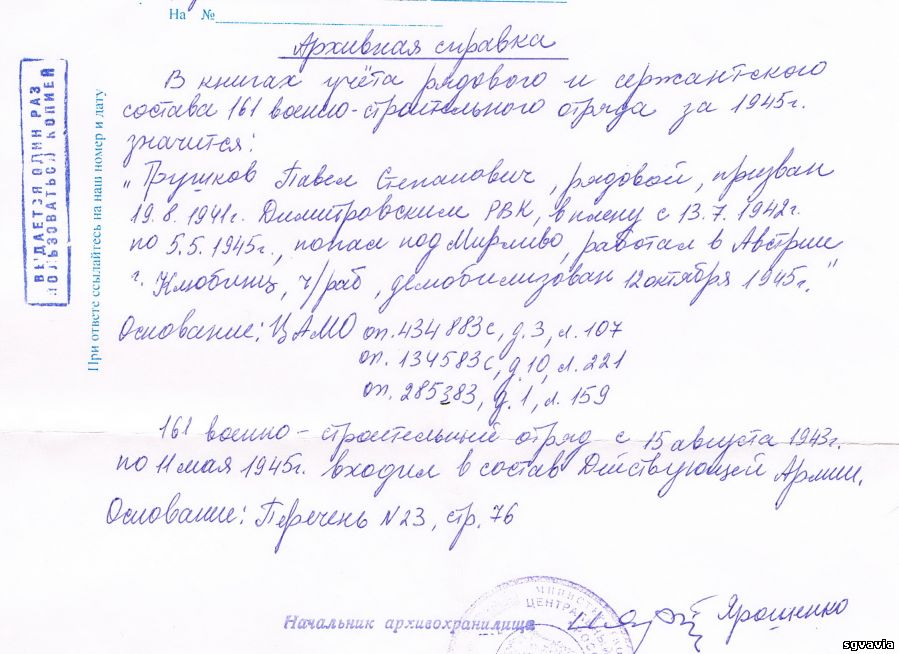 На №
Архивная справка
В книгах учёта рядового и сержантского
состава 161 военно-строительного отряда за 1945г.
значится:
"Трушков Павел Степанович, рядовой, призван
19.8.1941г. Димитровским РВК, в плену с 13.7.1942г.
по 5.5.1945г., попал под Мирливо, работал в Австрии
г. Клюбинц, ч/раб, демобилизован 12 октября 1945г."
Основание: ЦАМО оп.434883с, д.3, л.107
оп. 134583с, д.10, л.221
оп. 285383, д.1, л.159
161 военно-строительный отряд с 15 августа 1943г.
по 11 мая 1945г. входил в состав Действующей Армии.
Основание: Перечень N23, стр.76
Начальник архивохранилища
Ярошенко
ВЫДАЕТСЯ ОДИН РАЗ
ПОЛЬЗОВАТЬСЯ КОПИЕЙ
При ответе ссылайтесь на наш номер и дату
sgvavia